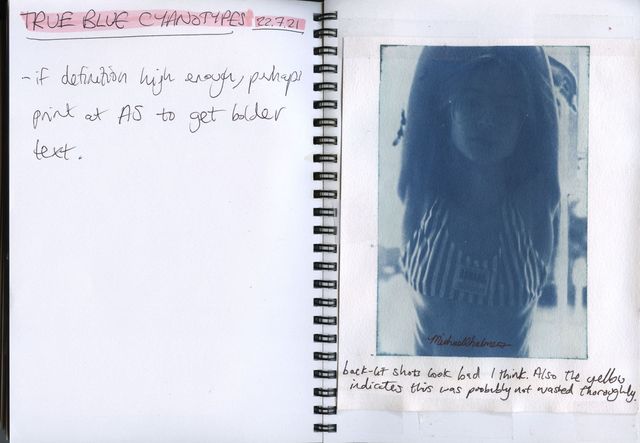 TRUE BLUE CYANOTYPES 22.7.21
- if definition high enough, perhaps
print at A5 to get bolder
text.
back-lit shots look bad I think. Also the yellow
indicates this was probably not washed thoroughly.